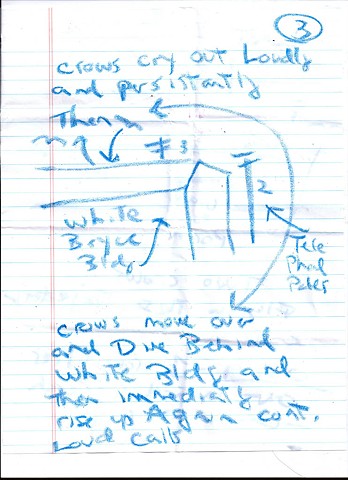 3
crows cry out Loudly
and persistantly
#3
2
White
Bryce
Bldg
Tele
Phone
Poles
crows move over
and Dive Behind
White Bldg and
then immediatly
rise up Again cont.
Loud calls